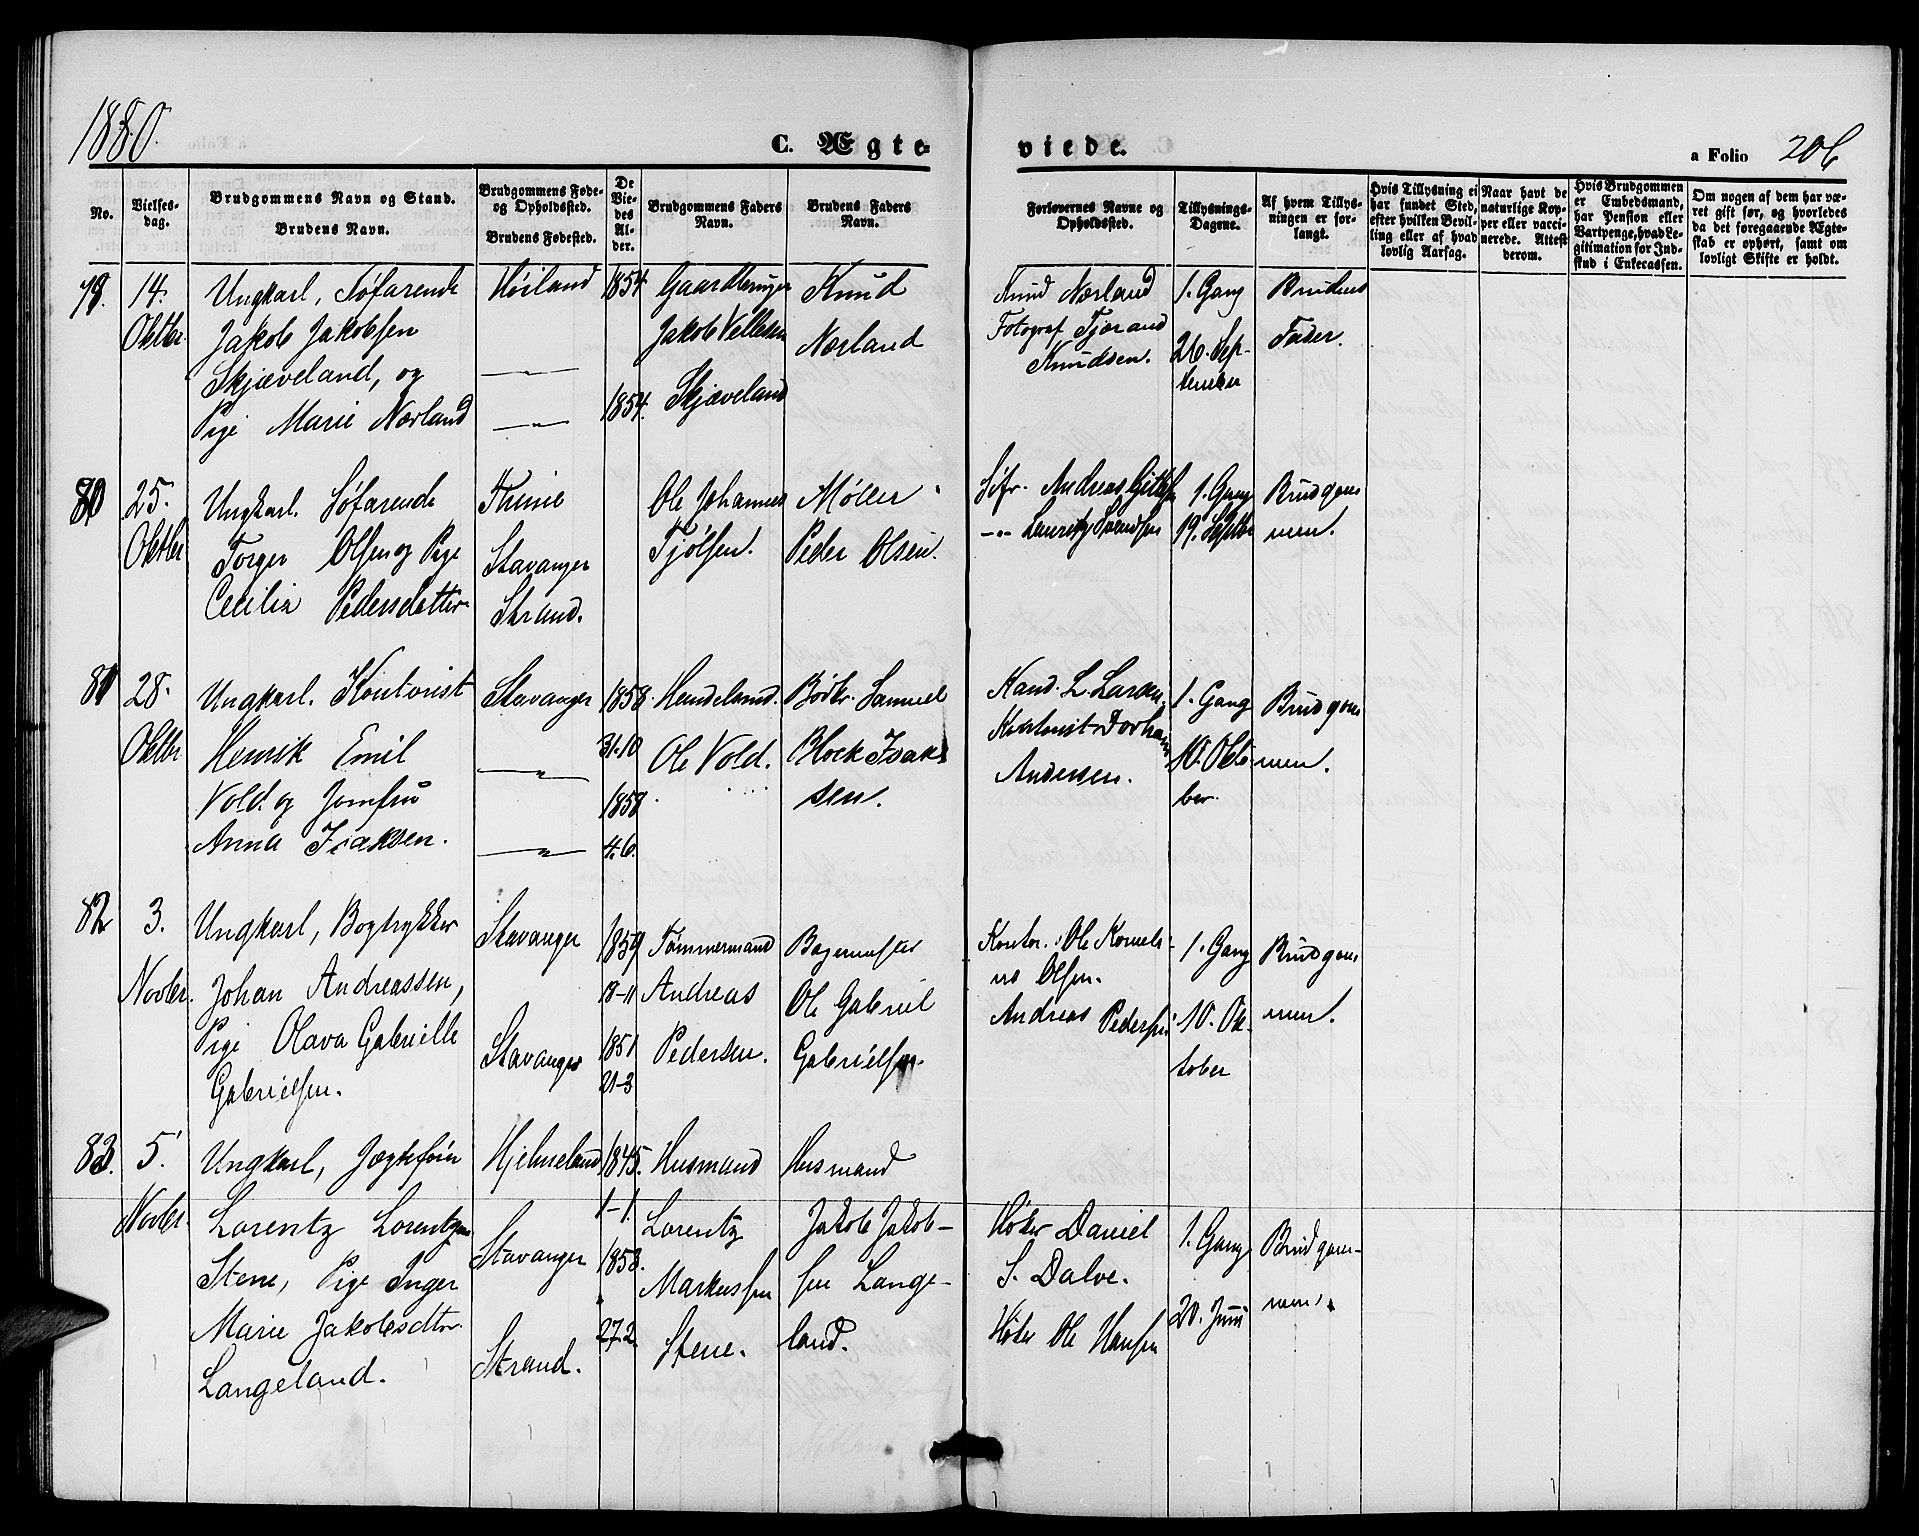 1880.
C. Ægte-
viede.
a Folio 206
No.
Vielses-
dag.
Brudgommens Navn og Stand.
Brudens Navn.
Brudgommens Føde-
og Opholdssted.
Brudens Fødested.
De
Vie-
des
Al-
der.
Brudgommens Faders
Navn.
Brudens Faders
Navn.
Forlovernes Navne og
Opholdssted.
Tillysnings-
Dagene.
Af hvem Tillys-
ningen er for-
langt.
Hvis Tillysning ei
har fundet Sted,
efter hvilken Bevil-
ling eller af hvad
lovlig Aarsag.
Naar havt de
naturlige Kop-
per eller vacci-
nerede. Attest
derom.
Hvis Brudgommen
er Embedsmand,
har Pension eller
Vartpenge, hvad Le-
gitimation for Ind-
skud i Enkecassen.
Om nogen af dem har væ-
ret gift før, og hvorledes
da det foregaaende Ægte-
skab er ophørt, samt om
lovligt Skifte er holdt.
79.
14.
Oktbr.
Ungkarl, Søfarende
Jakob Jakobsen
Skjæveland, og
Pige Marie Norland
Høiland
— " —
— " —
1854
1854.
Jakob
Skjæveland
Knud
Norland
Knud Norland
Fotograf Tjorand
Knudsen.
1. Gang
26. Sep-
tember
Brudens
Fader.
80
25.
Oktbr
Ungkarl. Søfarende
Torger Olsen og Pige
Cecilia Pedersdatter
Thime
Stavanger
Strand.
Ole Johannes
Tjølsen.
Møller
Peder Olsen.
Søfr. Andreas
— " — Lauritz Svendsen
1. Gang
19. Septbr
Brudgom
men.
81
28.
Oktbr
Ungkarl. Kontorist
Henrik Emil
Vold. og Jomfru
Anna Isaksen.
Stavanger
— " —
— " —
1858.
31-10
1858
4.6.
Handelsmd.
Ole Vold.
Bødkr. Samuel
Block Isak
sen.
Kand. L. Larsen,
Kontorist
Andersen.
1. Gang
10. Okto
ber.
Brudgom
men.
82
3.
Novbr.
Ungkarl, Bogtrykker
Johan Andreassen,
Pige Olava Gabrielle
Gabrielsen.
Stavanger
Stavanger
1859
18-11
1851
21-3
Tømmermand
Andreas
Pedersen.
Bagermester
Ole Gabriel
Gabrielsen.
Kontor. Ole Korneli
us Olsen.
Andreas Pedersen
1. Gang
10. Ok-
tober
Brudgom
men.
83.
5.
Novbr.
Ungkarl, Jægtefører
Lorentz Lorentzen
Stene, Pige Inger
Marie Jakobsdtr.
Langeland.
Hjelmeland
Stavanger
Strand.
1845.
1-1.
1853.
27.2.
Husmand
Lorentz
Markussen
Stene.
Husmand
Jakob Jakob-
sen Lange-
land.
Høker Daniel
S. Dalve.
Høker Ole Hansen
1. Gang
20. Juni
Brudgom-
men.